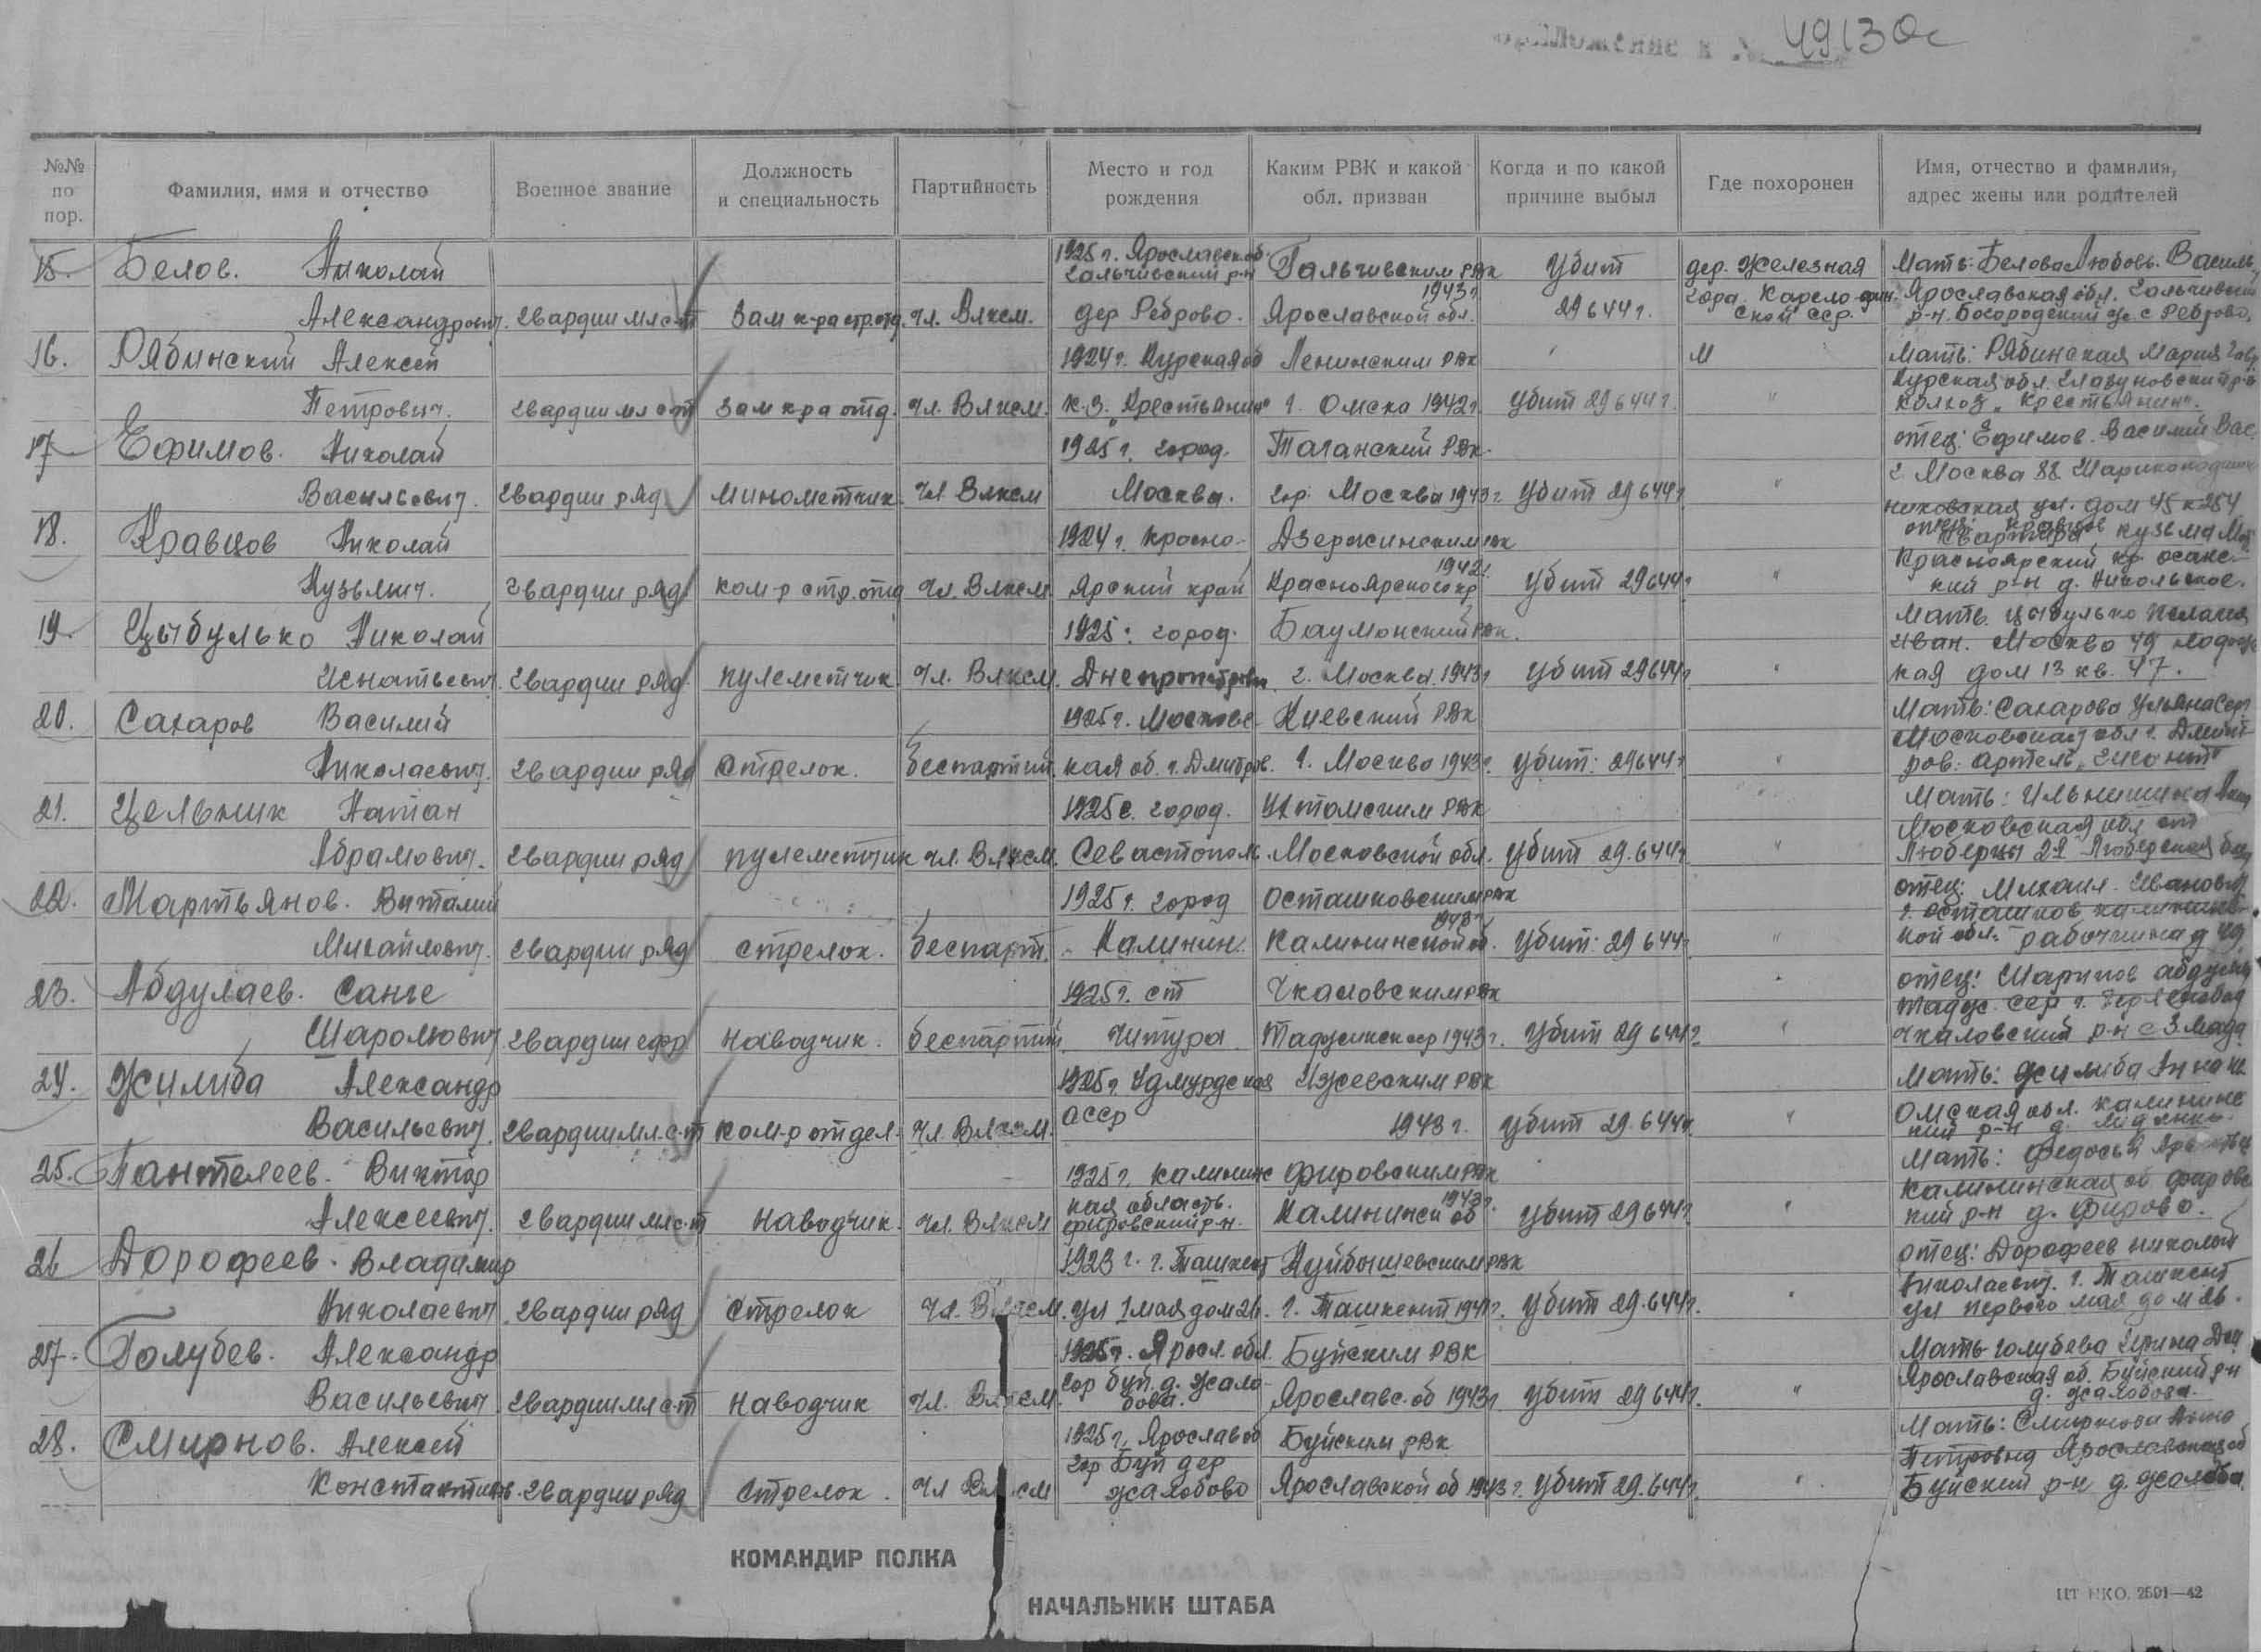 приложение к 4913 с
№№ по пор.
Фамилия, имя и отчество
Военное звание
Должность и специальность
Партийность
Место и год рождения
Каким РВК и какой обл. призван
Когда и по какой причине выбыл
Где похоронен
Имя, отчество и фамилия, адрес жены или родителей
15. Белов. Николай 1925 г. Ярославск об. Гальчивский р-н Гальчивским РВК Убит дер. Железная Мать: Белова Любовь. Василь
Александрович. гвардии мл с-т Зам к-ра стр отд. Чл. Влксм. дер Реброво. 1943 г Ярославской обл. 29 6 44 г. гора Карело-фин. ской сср. Ярославская обл. Гальчивский р-н. Богородский с Реброво.
16. Рябинский Алексей 1924 г. Курская об Ленинским РВК Мать: Рябинская Мария Гавр
Петрович. гвардии мл с-т Зам к-ра отд. Чл. Влксм. к.з. „Крестьянин" г. Омска 1942 г убит 29 6 44 г. " Курская обл. Глазуновский р-н колхоз „Крестьянин".
17 Ефимов. Николай 1925 г. город. Таганский РВК. отец: Ефимов. Василий Вас.
Васильевич. гвардии ряд минометчик. Чл Влксм Москва. гор. Москва 1943 г. Убит 29 6 44 г " г. Москва 88. Шарикоподшип
никовская ул. дом 45 к 254 квартира
18. Кравцов Николай 1924 г. Красно- Дзержинским РВК отец: Кравцов Кузьма
Кузьмич. гвардии ряд ком-р стр. отд Чл. Влксм. Ярский край 1942 г. Красноярского кр Убит 29 6 44 г " Красноярский кр. кий р-н д. Никольское.
19. Цыбулько Николай 1925 г. город. Баумонский РВК. Мать. Цыбулько Пелагия
Игнатьевич. гвардии ряд. пулеметчик Чл. Влксм. Днепропетровск. г. Москва. 1943 г Убит 29 6 44 г " Иван. Москва 49 кая дом 13 кв. 47.
20. Сахаров Василий 1925 г. Московс- Киевский РВК Мать: Сахарова Ульяна Сер
Николаевич. гвардии ряд стрелок. беспартий. кая об. г. Дмитров. г. Москва 1943 г. Убит: 29 6 44 г " Московская обл г. Дмит- ров. артель „Гигант"
21. Цельник Натан 1925 г. город. Ухтомским РВК Мать:
Абрамович. гвардии ряд пулеметчик Чл. Влксм. Севастополь. Московской обл. Убит 29. 6 44 г " Московская обл ст Люберцы
22. Мартьянов. Виталий 1925 г. город Осташковским РВК отец: Михаил. Иванович
Михайлович. гвардии ряд стрелок. беспарт. Калинин. 1943 г Калининской об. Убит: 29 6 44 г. " г. Осташков калининс- кой обл.
23. Абдулаев. Санге 1925 г. ст Чкаловским РВК отец: Шарипов
Шаролювич гвардии ефр наводчик. беспартий Чптура Таджикск сср 1943 г. Убит 29 6 44 г. " Тадж. сср Чкаловский р-н
24. Жилиба Александр 1925 г. Удмурдская Ижевским РВК Мать: Жилиба Анна
Васильевич. гвардии мл. с-т ком-р отдел. Чл. Влксм. АССР 1943 г. Убит 29. 6 44 г. " Омская обл. Калининс кий р-н д.
25. Пантелеев. Виктор 1925 г. калининс Фировским РВК Мать: Федосья
Алексеевич. гвардии мл с-т наводчик. Чл. Влксм кая область. Фировский р-н. 1943 г. Калининск об Убит 29 6 44 г. " Калининская об Фировс кий р-н д. Фирово.
26 Дорофеев. Владимир 1923 г. г. Ташкент Куйбышевским РВК отец: Дорофеев Николай
Николаевич гвардии ряд стрелок Чл. Влксм. ул 1 мая дом 26. г. Ташкент Убит 29. 6 44 г. " Николаевич. г. Ташкент ул первого мая дом 26.
27. Голубев. Александр 1925 г. Яросл. обл. Буйским РВК Мать Голубева
Васильевич. гвардии мл с-т наводчик Чл. Влксм. гор буй. д. жало- бова. Ярославс. об 1943 г. Убит 29 6 44 г. " Ярославская об. Буйский р-н д. Жалобова.
28. Смирнов. Алексей 1925 г. Ярослав об Буйским РВК Мать: Смирнова Анна
Константинов. гвардии ряд стрелок. Чл Влксм гор Буй дер жалобово Ярославской об 1943 г. Убит 29. 6 44 г. " Петровна Ярославская об Буйский р-н д. жалоба.
КОМАНДИР ПОЛКА
НАЧАЛЬНИК ШТАБА
ЦТ НКО. 2591—42